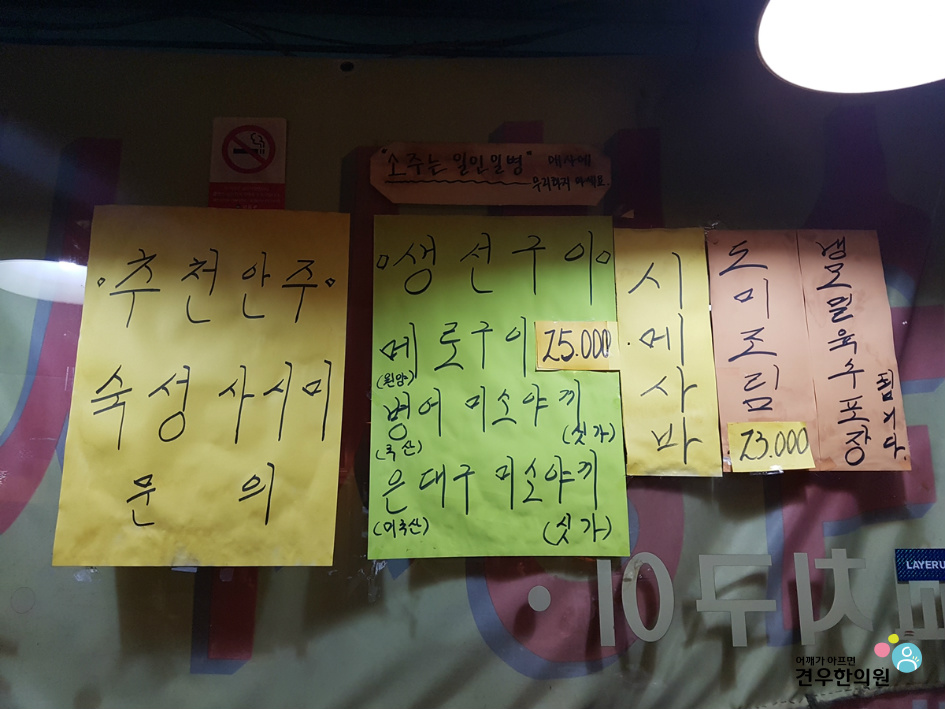 "소주는 일인일병" 예사예
무리하지 마세요.
·추천안주·
숙성 사시미
문의
·생선구이·
메로구이 25.000
(원양)
병어 미소야끼
(국산) (싯가)
은대구 미소야끼
(미국산) (싯가)
시메사바
도미조림
23.000
냉모밀육수포장
됩니다.
치구이
LAYERU
어깨가 아프면
견우한의원